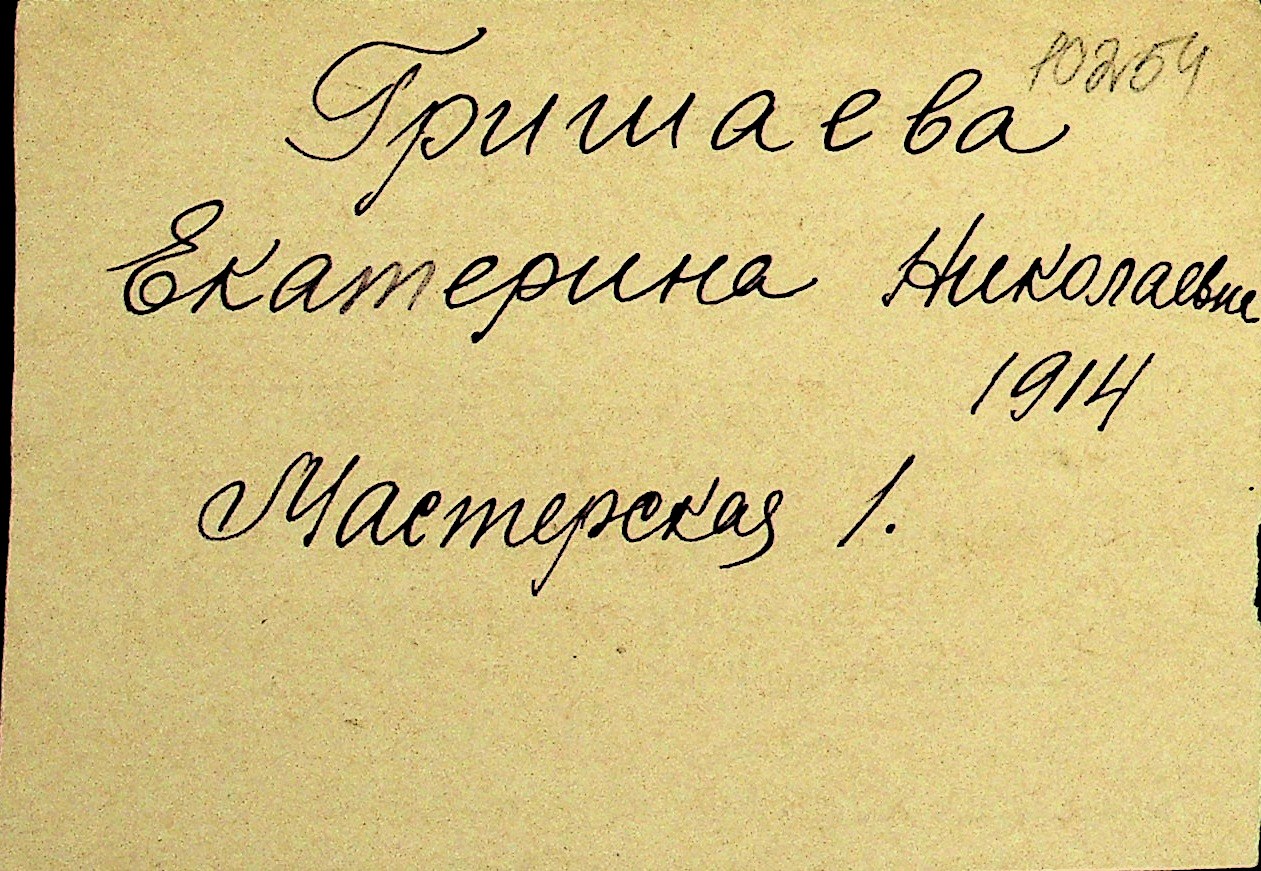 10254
Гришаева
Екатерина Николаевна
1914
Мастерская 1.